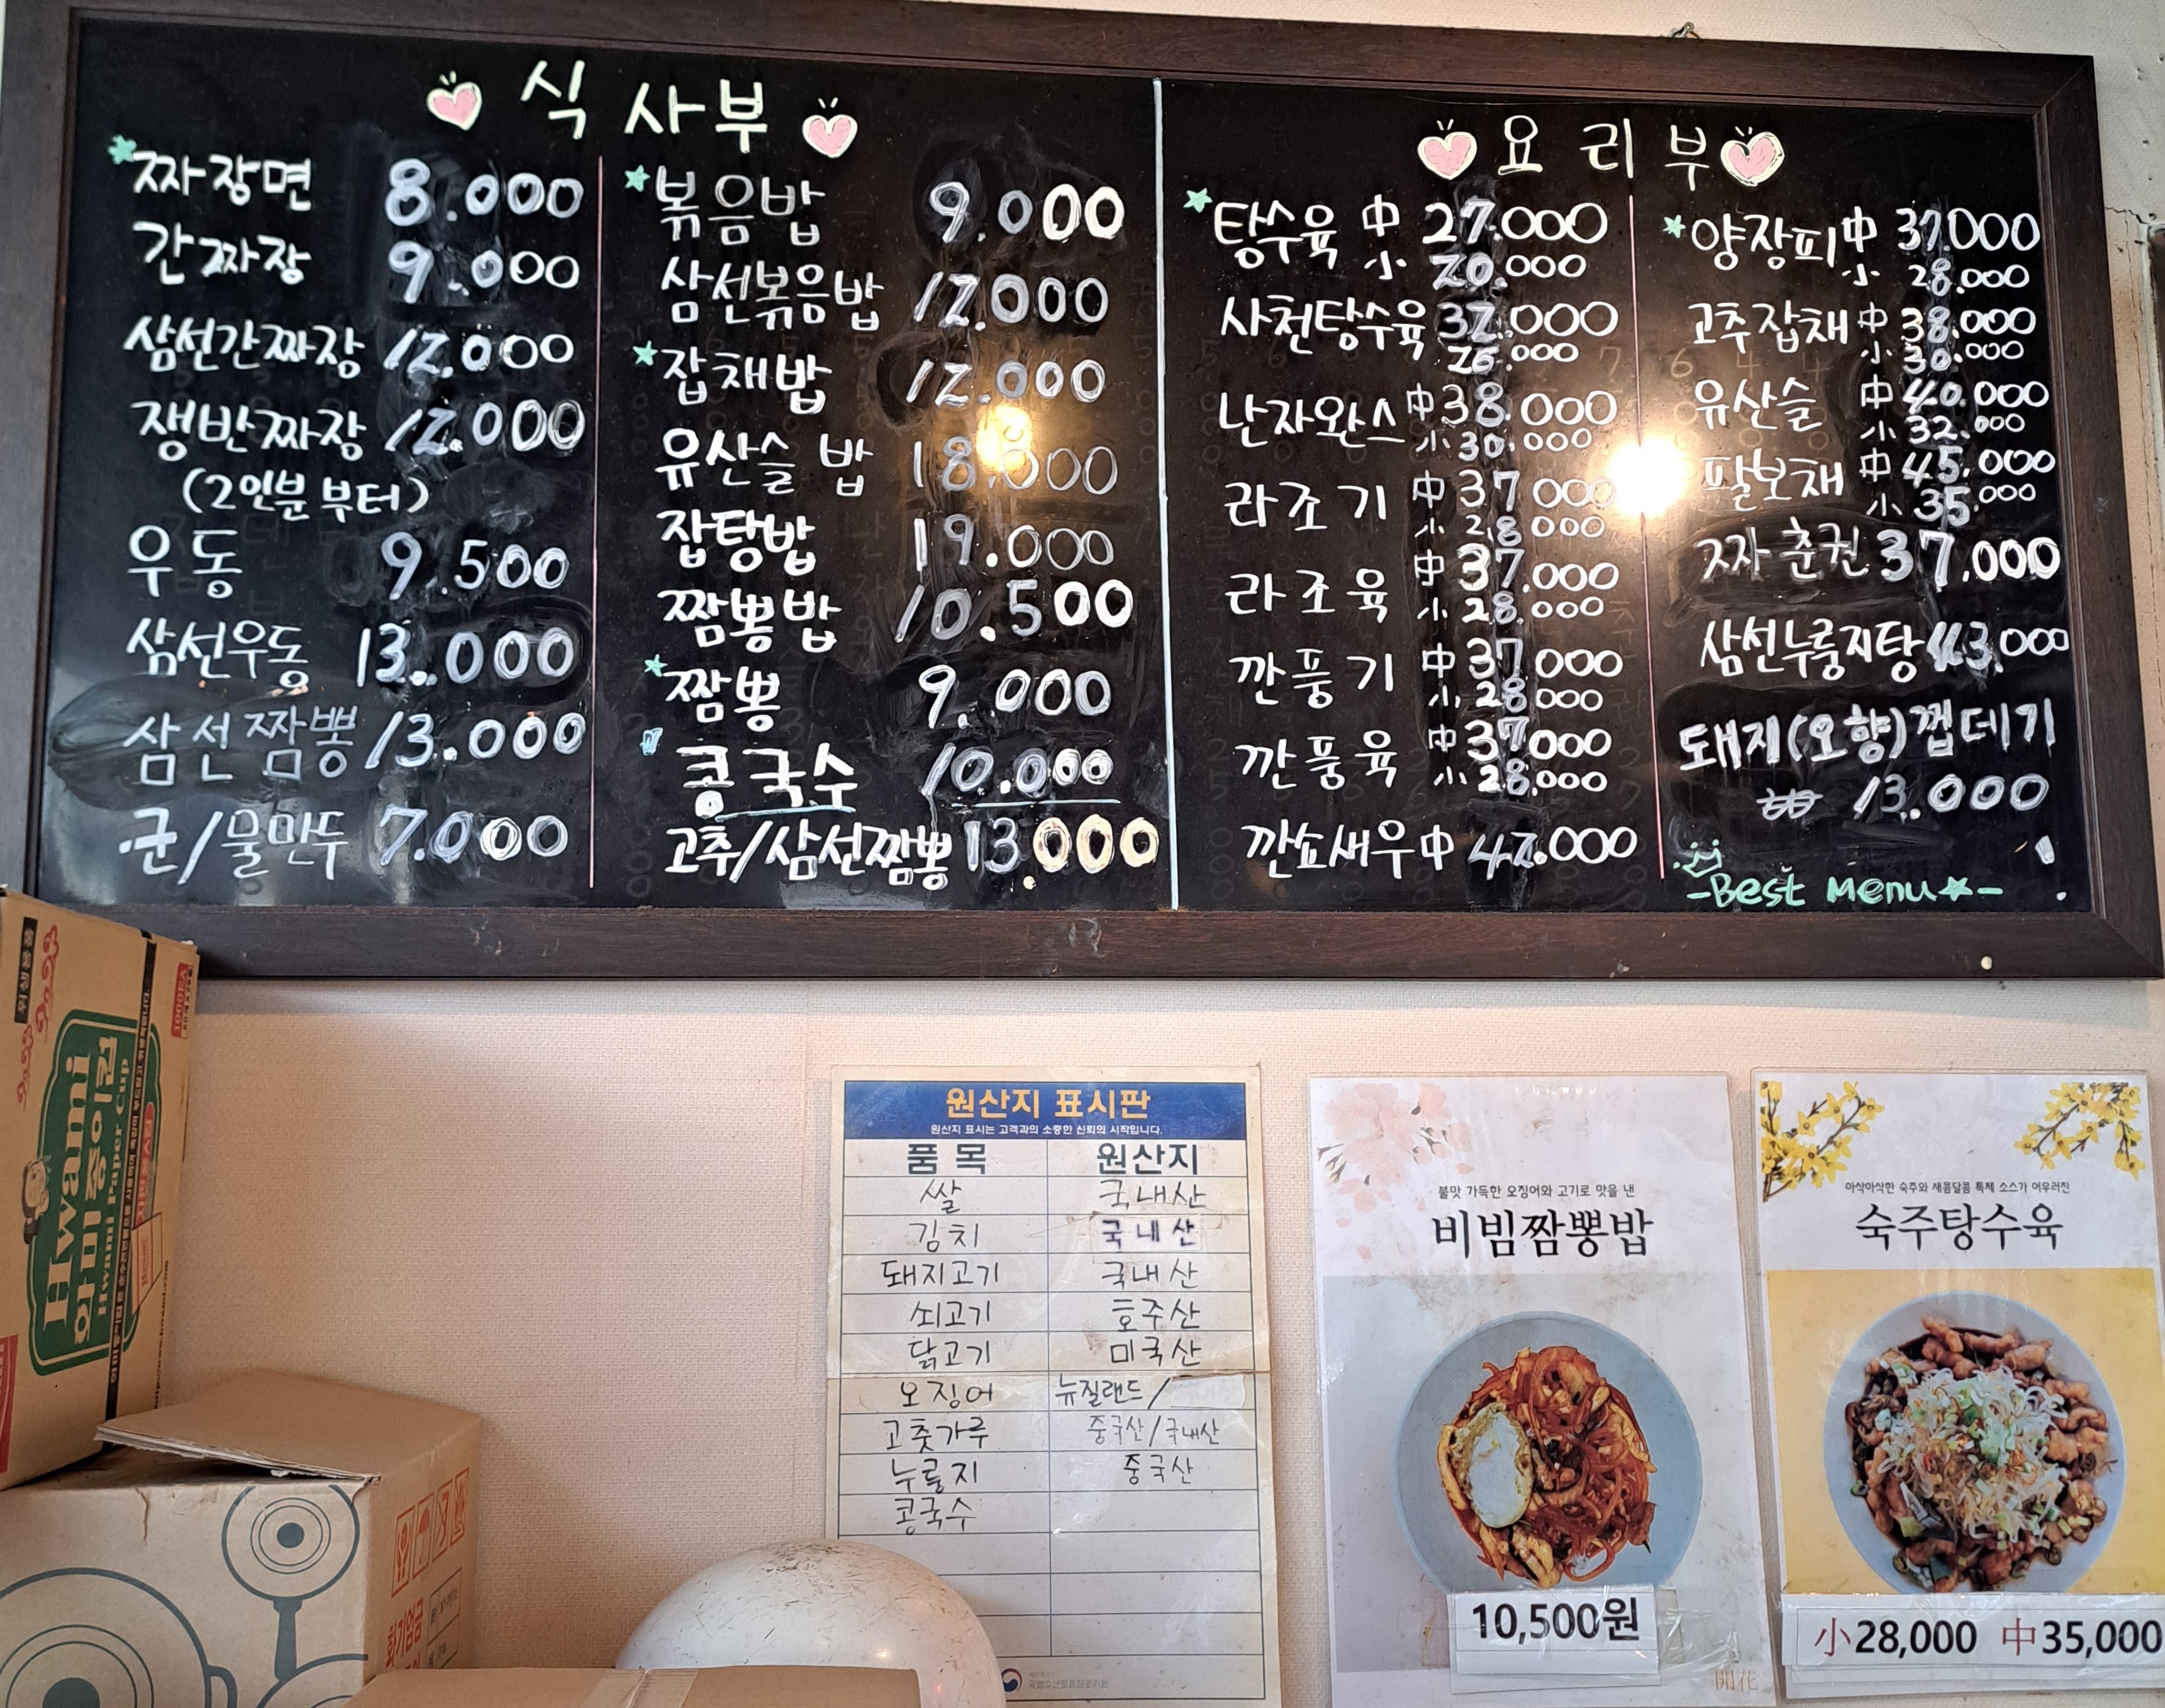 식사부
짜장면 8.000
간짜장 9.000
삼선간짜장 12.000
쟁반짜장 12.000
(2인분 부터)
우동 9.500
삼선우동 13.000
삼선짬뽕 13.000
군/물만두 7.000
볶음밥 9.000
삼선볶음밥 12.000
잡채밥 12.000
유산슬밥 18.000
잡탕밥 19.000
짬뽕밥 10.500
짬뽕 9.000
콩국수 10.000
고추/삼선짬뽕 13.000
요리부
탕수육 中 27.000
小 20.000
사천탕수육 32.000
26.000
난자완스 中 38.000
小 30.000
라조기 中 37.000
小 28.000
라조육 中 37.000
小 28.000
깐풍기 中 37.000
小 28.000
깐풍육 中 37.000
小 28.000
깐쇼새우 中 42.000
양장피 中 37.000
小 28.000
고추잡채 中 38.000
小 30.000
유산슬 中 40.000
小 32.000
팔보채 中 45.000
小 35.000
짜춘권 37.000
삼선누룽지탕 43.000
돼지(오향)껍데기
13.000
-Best Menu★-
원산지 표시판
원산지 표시는 고객과의 소중한 신뢰의 시작입니다.
품목 원산지
쌀 국내산
김치 국내산
돼지고기 국내산
쇠고기 호주산
닭고기 미국산
오징어 뉴질랜드/
고춧가루 중국산/국내산
누룽지 중국산
콩국수
불맛 가득한 오징어와 고기로 맛을 낸
비빔짬뽕밥
10,500원
開花
아삭아삭한 숙주와 새콤달콤 특제 소스가 어우러진
숙주탕수육
小28,000 中35,000
위생용품
1000EA
Hwami
화미종이컵
Hwami Paper Cup
화기엄금